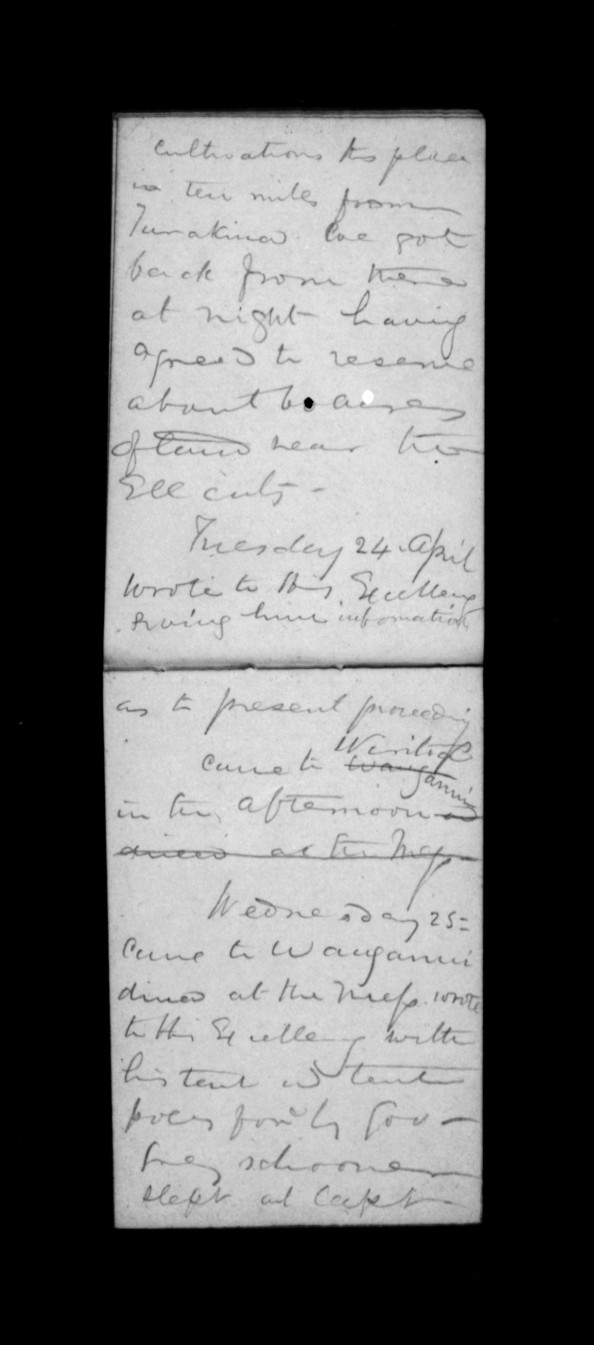 cultivations this place
is ten miles from
Turakina we got
back from there
at night having
agreed to reserve
about acres
of land near the
Eel cuts -
Tuesday 24 April
wrote to His Excellency
giving him information
as to present proceeding
came to Wanganui
in the afternoon and
dined at the Mess
Wednesday 25=
Came to Wanganui
dined at the Mess. wrote
to His Excellency with
his tent and tent
poles by Gov -
Grey schooner
slept at Capt